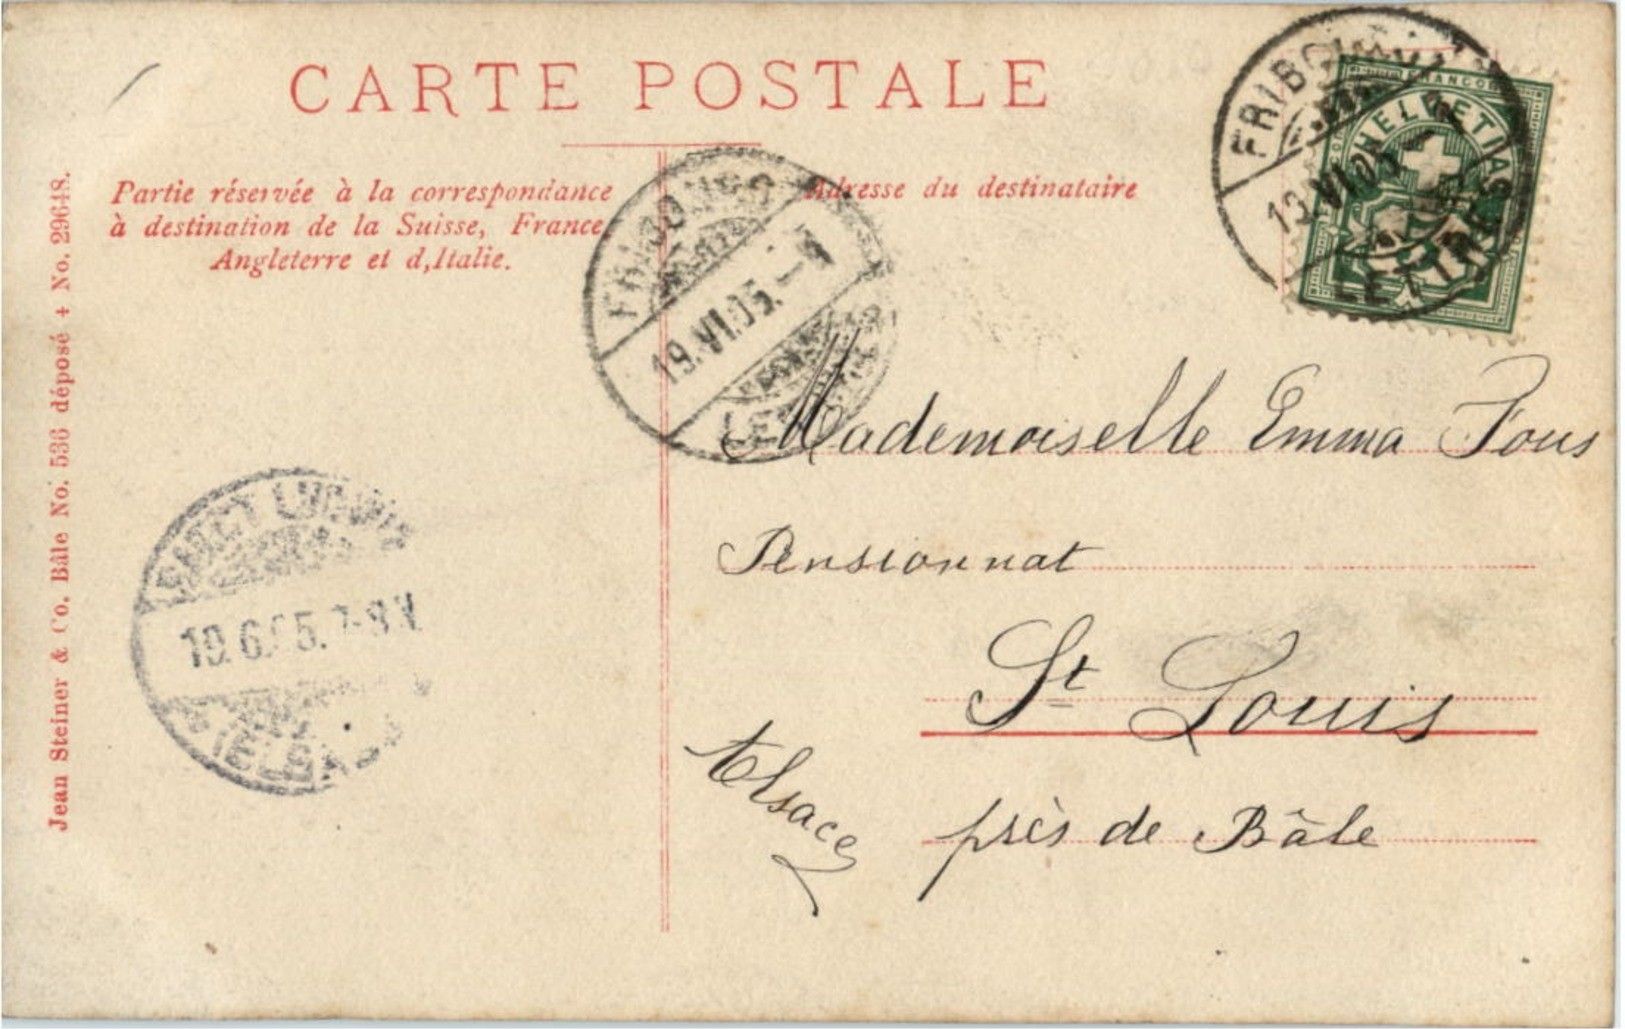 CARTE POSTALE
Partie réservée à la correspondance
à destination de la Suisse, France
Angleterre et d,Italie.
Adresse du destinataire
Jean Steiner & Co. Bâle No. 536 déposé + No. 29648.
FRIBOURG
19.VI.05.
LETTRES
FRANCO
HELVETIA
FRIBOURG
19.VI.05.
SANCT LUDWIG
19.6.05. 7-8 V
(ELSASS)
Mademoiselle Emma Fous
Pensionnat
St Louis
près de Bâle
Alsace